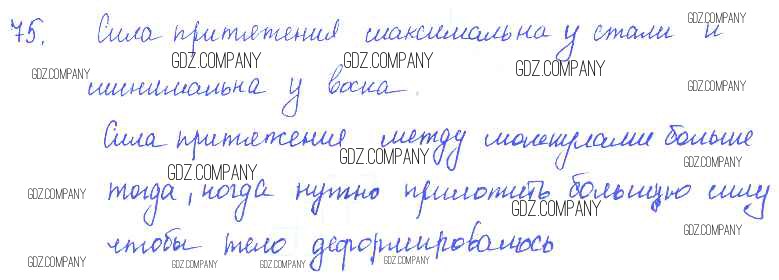 75. Сила притяжения максимальна у стали и
GDZ.COMPANY
GDZ.COMPANY GDZ.COMPANY GDZ.COMPANY
GDZ.COMPANY
минимальна у воска.
GDZ.COMPANY
Сила притяжение между молекулами больше
GDZ.COMPANY GDZ.COMPANY GDZ.COMPANY
тогда, когда нужно приложить большую силу
GDZ.COMPANY GDZ.COMPANY
чтобы тело деформировалось
GDZ.COMPANY
GDZ.COMPANY GDZ.COMPANY GDZ.COMPANY GDZ.COMPANY GDZ.COMPANY